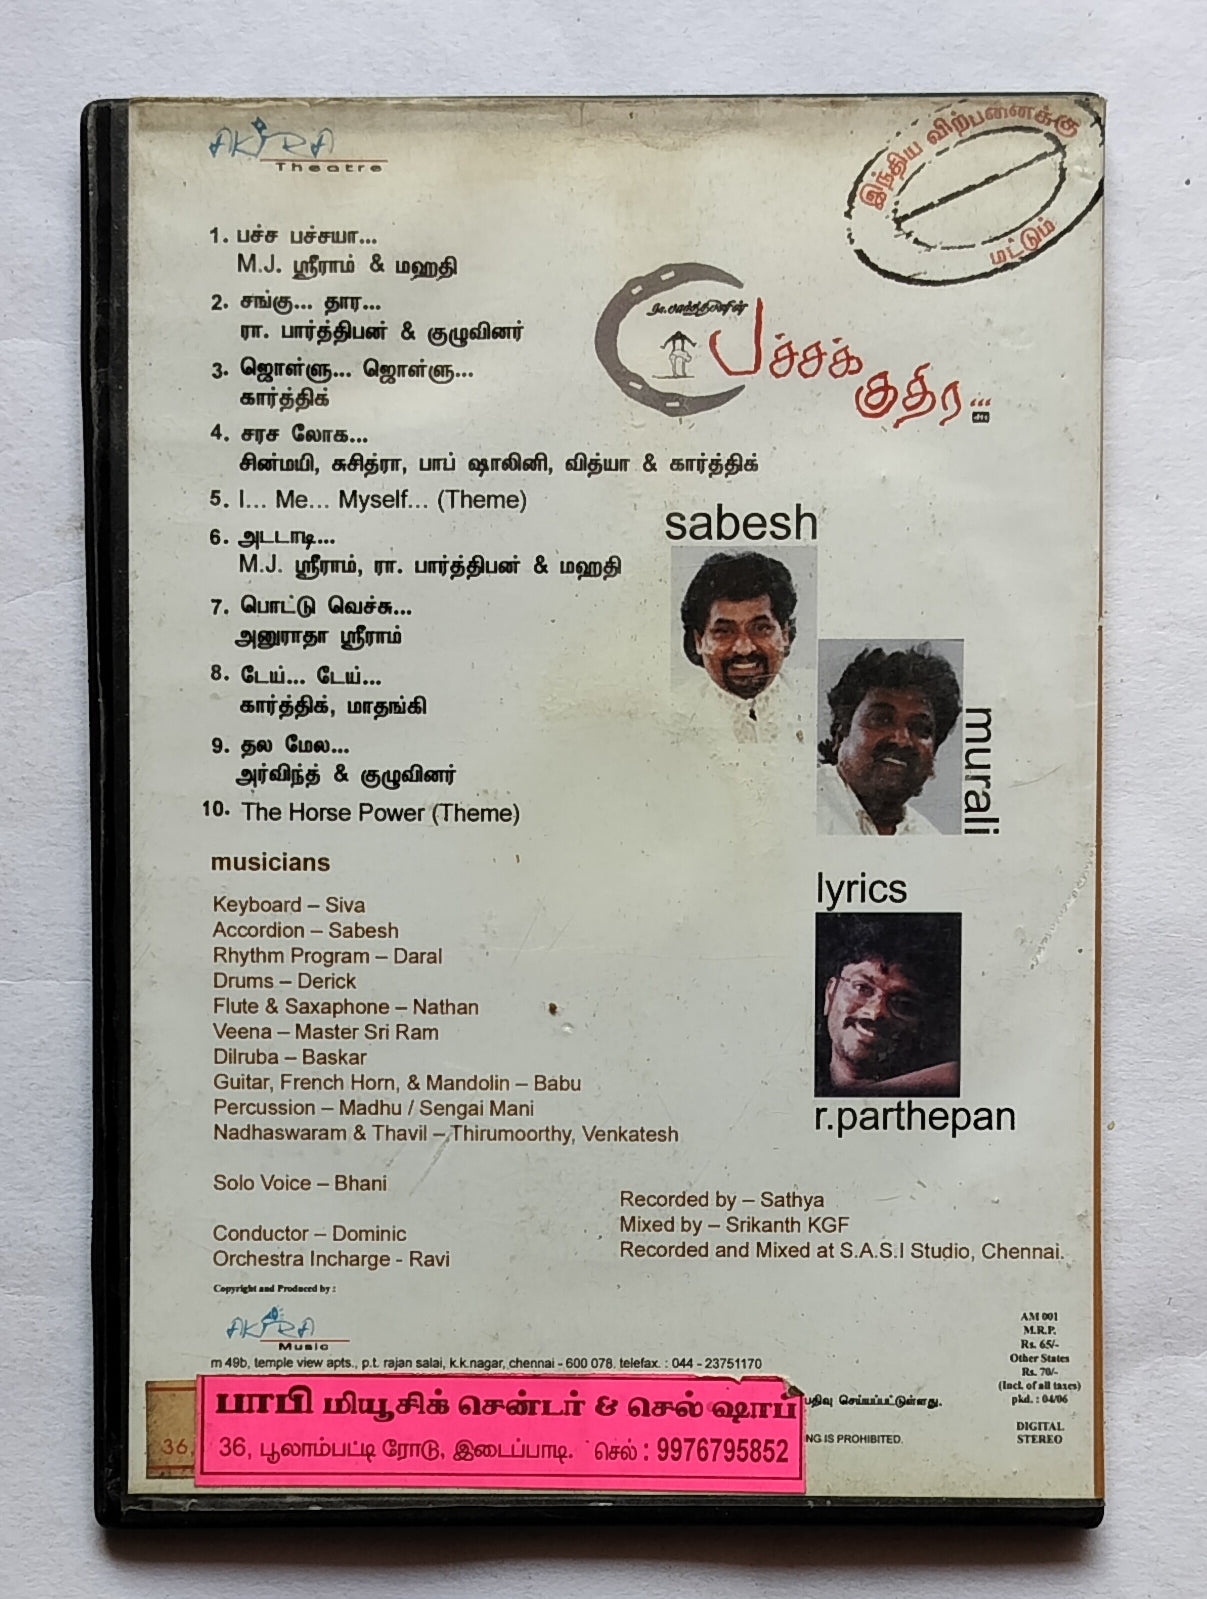 AKIRA
Theatre
இந்திய விற்பனைக்கு
மட்டும்
1. பச்ச பச்சயா...
M.J. ஸ்ரீராம் & மஹதி
2. சங்கு... தார...
ரா. பார்த்திபன் & குழுவினர்
3. ஜொள்ளு... ஜொள்ளு...
கார்த்திக்
4. சரச லோக...
சின்மயி, சுசித்ரா, பாப் ஷாலினி, வித்யா & கார்த்திக்
5. I... Me... Myself... (Theme)
6. அடடாடி...
M.J. ஸ்ரீராம், ரா. பார்த்திபன் & மஹதி
7. பொட்டு வெச்சு...
அனுராதா ஸ்ரீராம்
8. டேய்... டேய்...
கார்த்திக், மாதங்கி
9. தல மேல...
அர்விந்த் & குழுவினர்
10. The Horse Power (Theme)
ரா.பார்த்திபனின்
பச்சக்
குதிர...
sabesh
murali
lyrics
r.parthepan
musicians
Keyboard – Siva
Accordion – Sabesh
Rhythm Program – Daral
Drums – Derick
Flute & Saxaphone – Nathan
Veena – Master Sri Ram
Dilruba – Baskar
Guitar, French Horn, & Mandolin – Babu
Percussion – Madhu / Sengai Mani
Nadhaswaram & Thavil – Thirumoorthy, Venkatesh
Solo Voice – Bhani
Conductor – Dominic
Orchestra Incharge - Ravi
Recorded by – Sathya
Mixed by – Srikanth KGF
Recorded and Mixed at S.A.S.I Studio, Chennai.
Copyright and Produced by :
AKIRA
Music
m 49b, temple view apts., p.t. rajan salai, k.k.nagar, chennai - 600 078. telefax. : 044 - 23751170
AM 001
M.R.P.
Rs. 65/-
Other States
Rs. 70/-
(Incl. of all taxes)
pkd. : 04/06
DIGITAL
STEREO
பதிவு செய்யப்பட்டுள்ளது.
NG IS PROHIBITED.
36,
பாபி மியூசிக் சென்டர் & செல் ஷாப்
36, பூலாம்பட்டி ரோடு, இடைப்பாடி. செல் : 9976795852